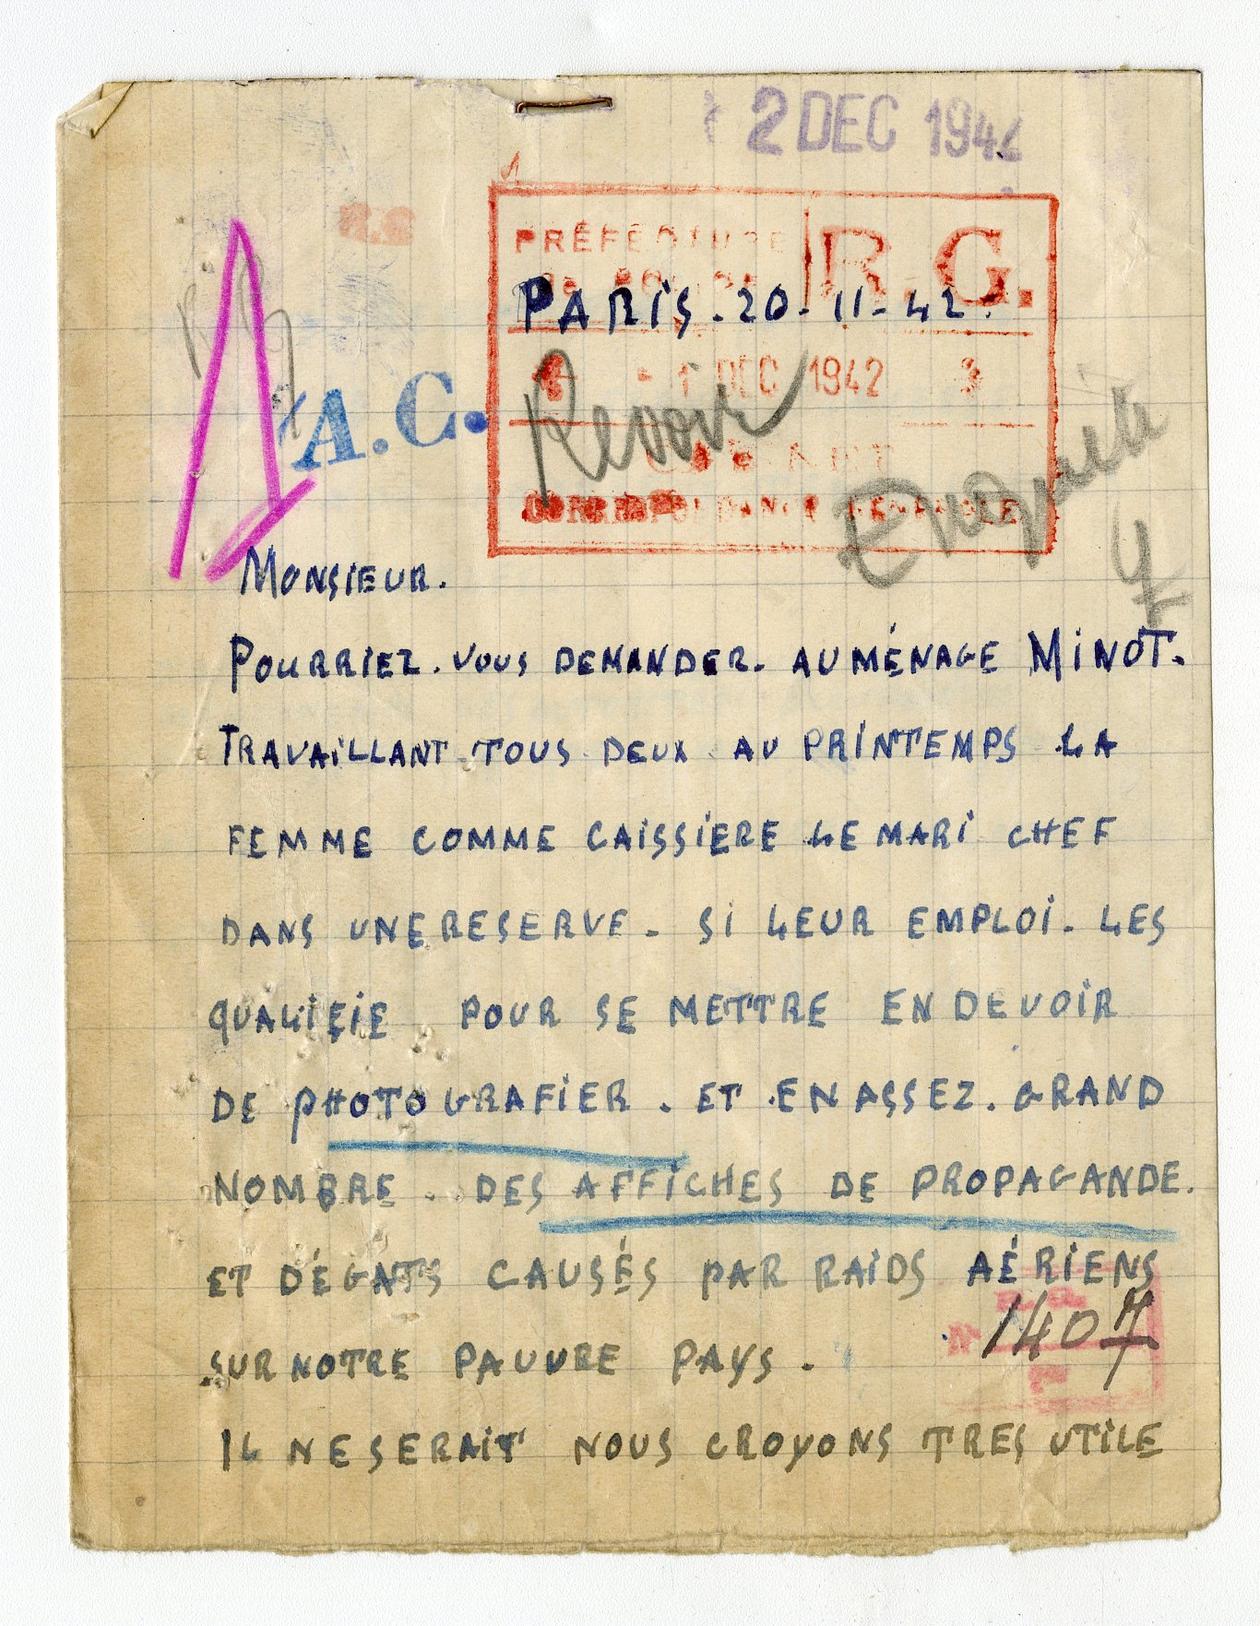 2 DEC 194
PRÉFECTURE
DE POLICE
R.G.
PARIS. 20. 11. 42.
1 DEC 1942 3
A.C.
Revoir
CABINET
Enquête
CORRESPONDANCE GENERALE
MONSIEUR.
POURRIEZ. VOUS DEMANDER. AU MÉNAGE MINOT.
TRAVAILLANT TOUS DEUX AU PRINTEMPS LA
FEMME COMME CAISSIERE LE MARI CHEF
DANS UNE RESERVE. SI LEUR EMPLOI. LES
QUALIFIE POUR SE METTRE EN DEVOIR
DE PHOTOGRAFIER. ET EN ASSEZ. GRAND
NOMBRE. DES AFFICHES DE PROPAGANDE.
ET DÉGATS CAUSÉS PAR RAIDS AÉRIENS
1407
SUR NOTRE PAUVRE PAYS.
IL NE SERAIT NOUS CROYONS TRES UTILE